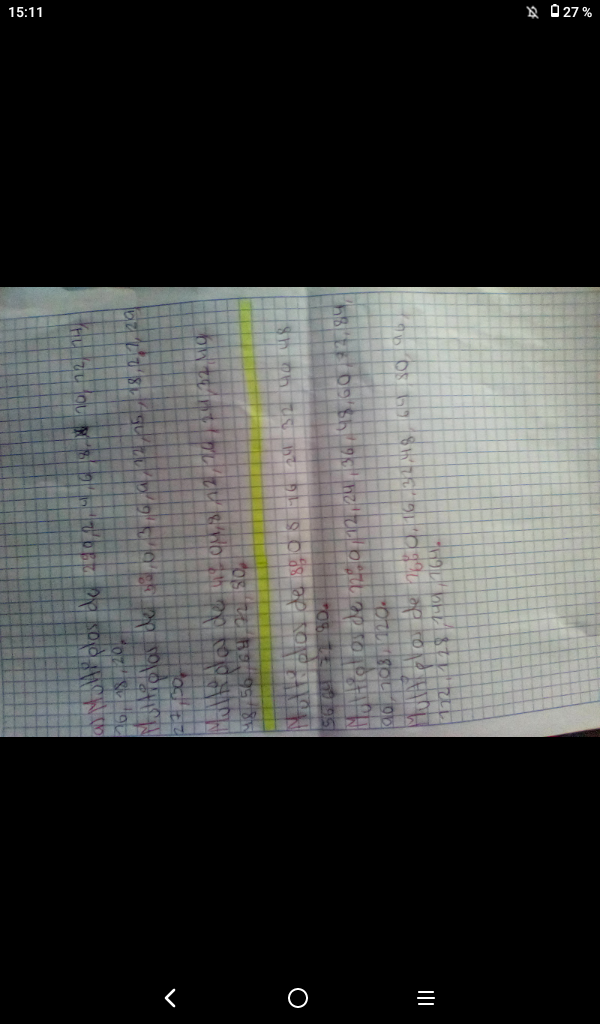 15:11
27 %
a) Multiplos de 2: 0, 2, 4, 6, 8, 10, 12, 14,
16, 18, 20.
Multiplos de 3: 0, 3, 6, 9, 12, 15, 18, 21, 24
27, 30.
Multiplos de 4: 0, 4, 8, 12, 16, 24, 32, 40
48, 56, 64, 72, 80.
Multiplos de 8: 0 8 16 24 32 40 48
56 64 72 80.
Multiplos de 12: 0, 12, 24, 36, 48, 60, 72, 84,
96, 108, 120.
Multiplos de 16: 0, 16, 32, 48, 64, 80, 96,
112, 128, 144, 164.